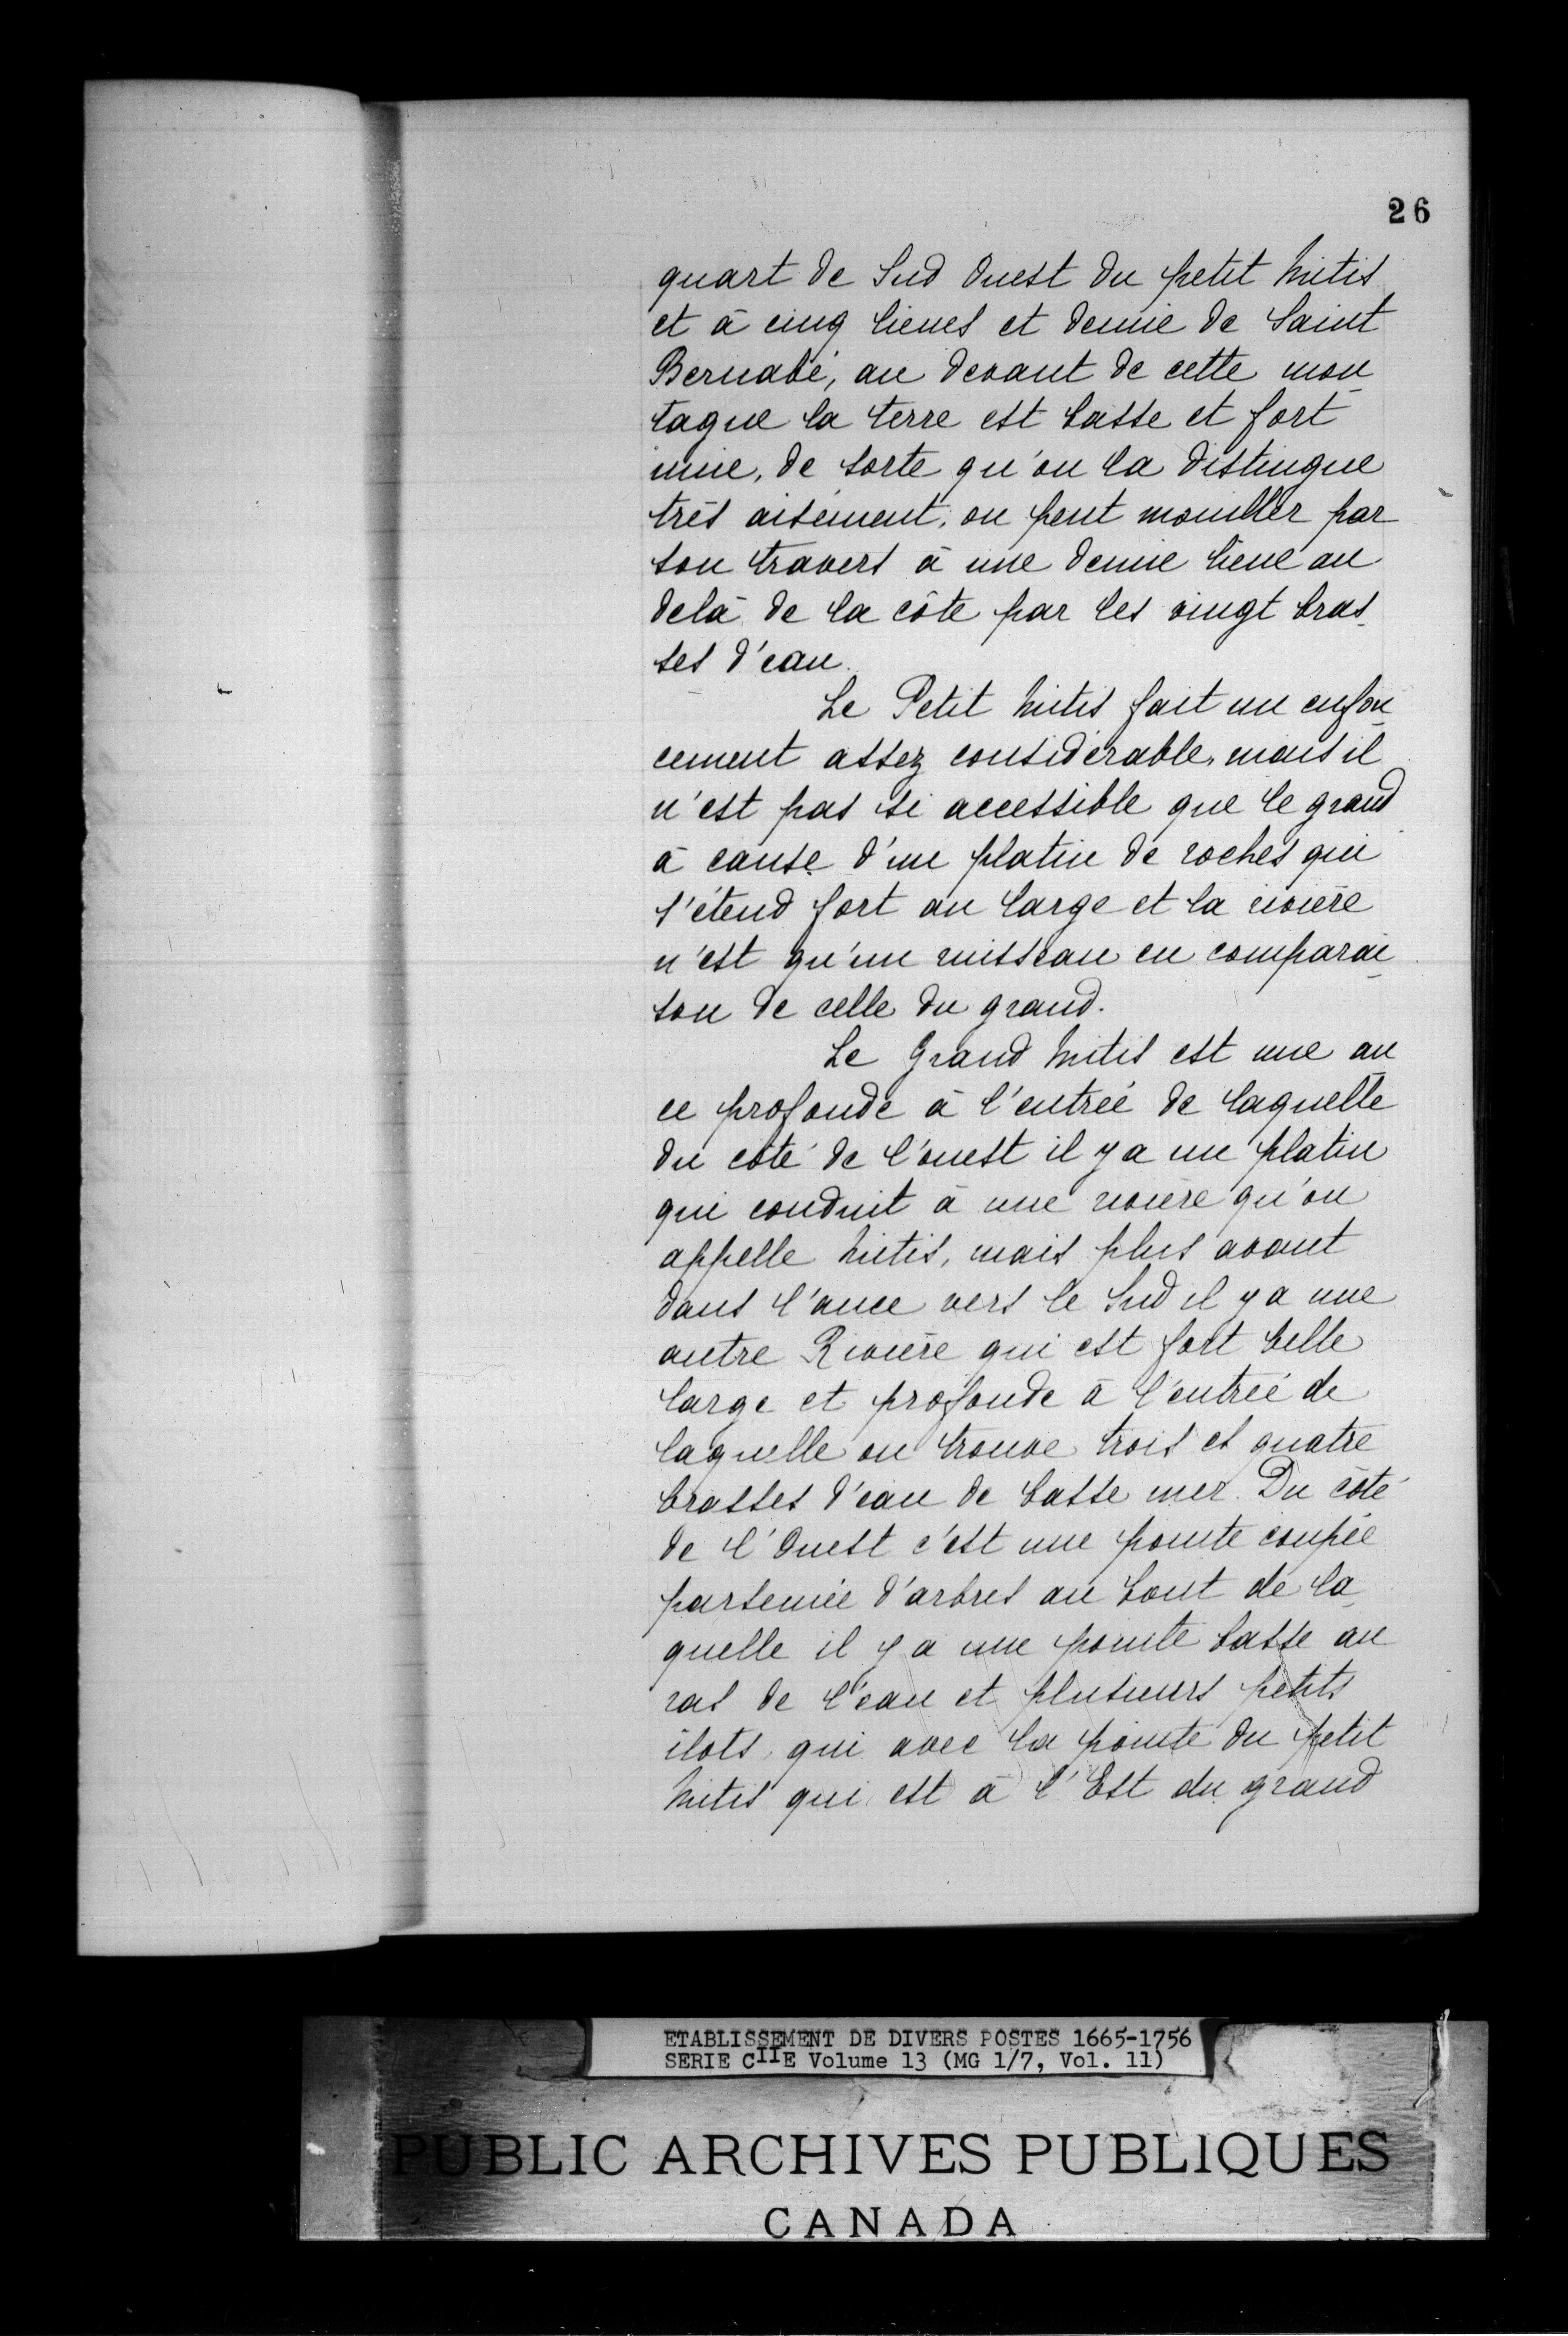 26
quart de Sud Ouest du petit Mitis
et à cinq lieues et demie de Saint
Bernabé, au devant de cette mon
tagne la terre est basse et fort
unie, de sorte qu'on la distingue
très aisément, on peut mouiller par
son travers à une demie lieue au
delà de la côte par les vingt bras
ses d'eau.
Le Petit Mitis fait un enfon
cement assez considérable, mais il
n'est pas si accessible que le grand
à cause d'un platin de roches qui
s'étend fort au large et la rivière
n'est qu'un ruisseau en comparai
son de celle du grand.
Le Grand Mitis est une an
ce profonde à l'entrée de laquelle
du côté de l'ouest il y a un platin
qui conduit à une rivière qu'on
appelle Mitis, mais plus avant
dans l'ance vers le Sud il y a une
autre Rivière qui est fort belle
large et profonde à l'entrée de
laquelle on trouve trois et quatre
brasses d'eau de basse mer. Du côté
de l'Ouest c'est une pointe coupée
parsemée d'arbres au bout de la
quelle il y a une pointe basse au
ras de l'eau et plusieurs petits
ilots, qui avec la pointe du petit
Mitis qui est à l'Est du grand
ETABLISSEMENT DE DIVERS POSTES 1665-1756
SERIE CIIE Volume 13 (MG 1/7, Vol. 11)
PUBLIC ARCHIVES PUBLIQUES
CANADA